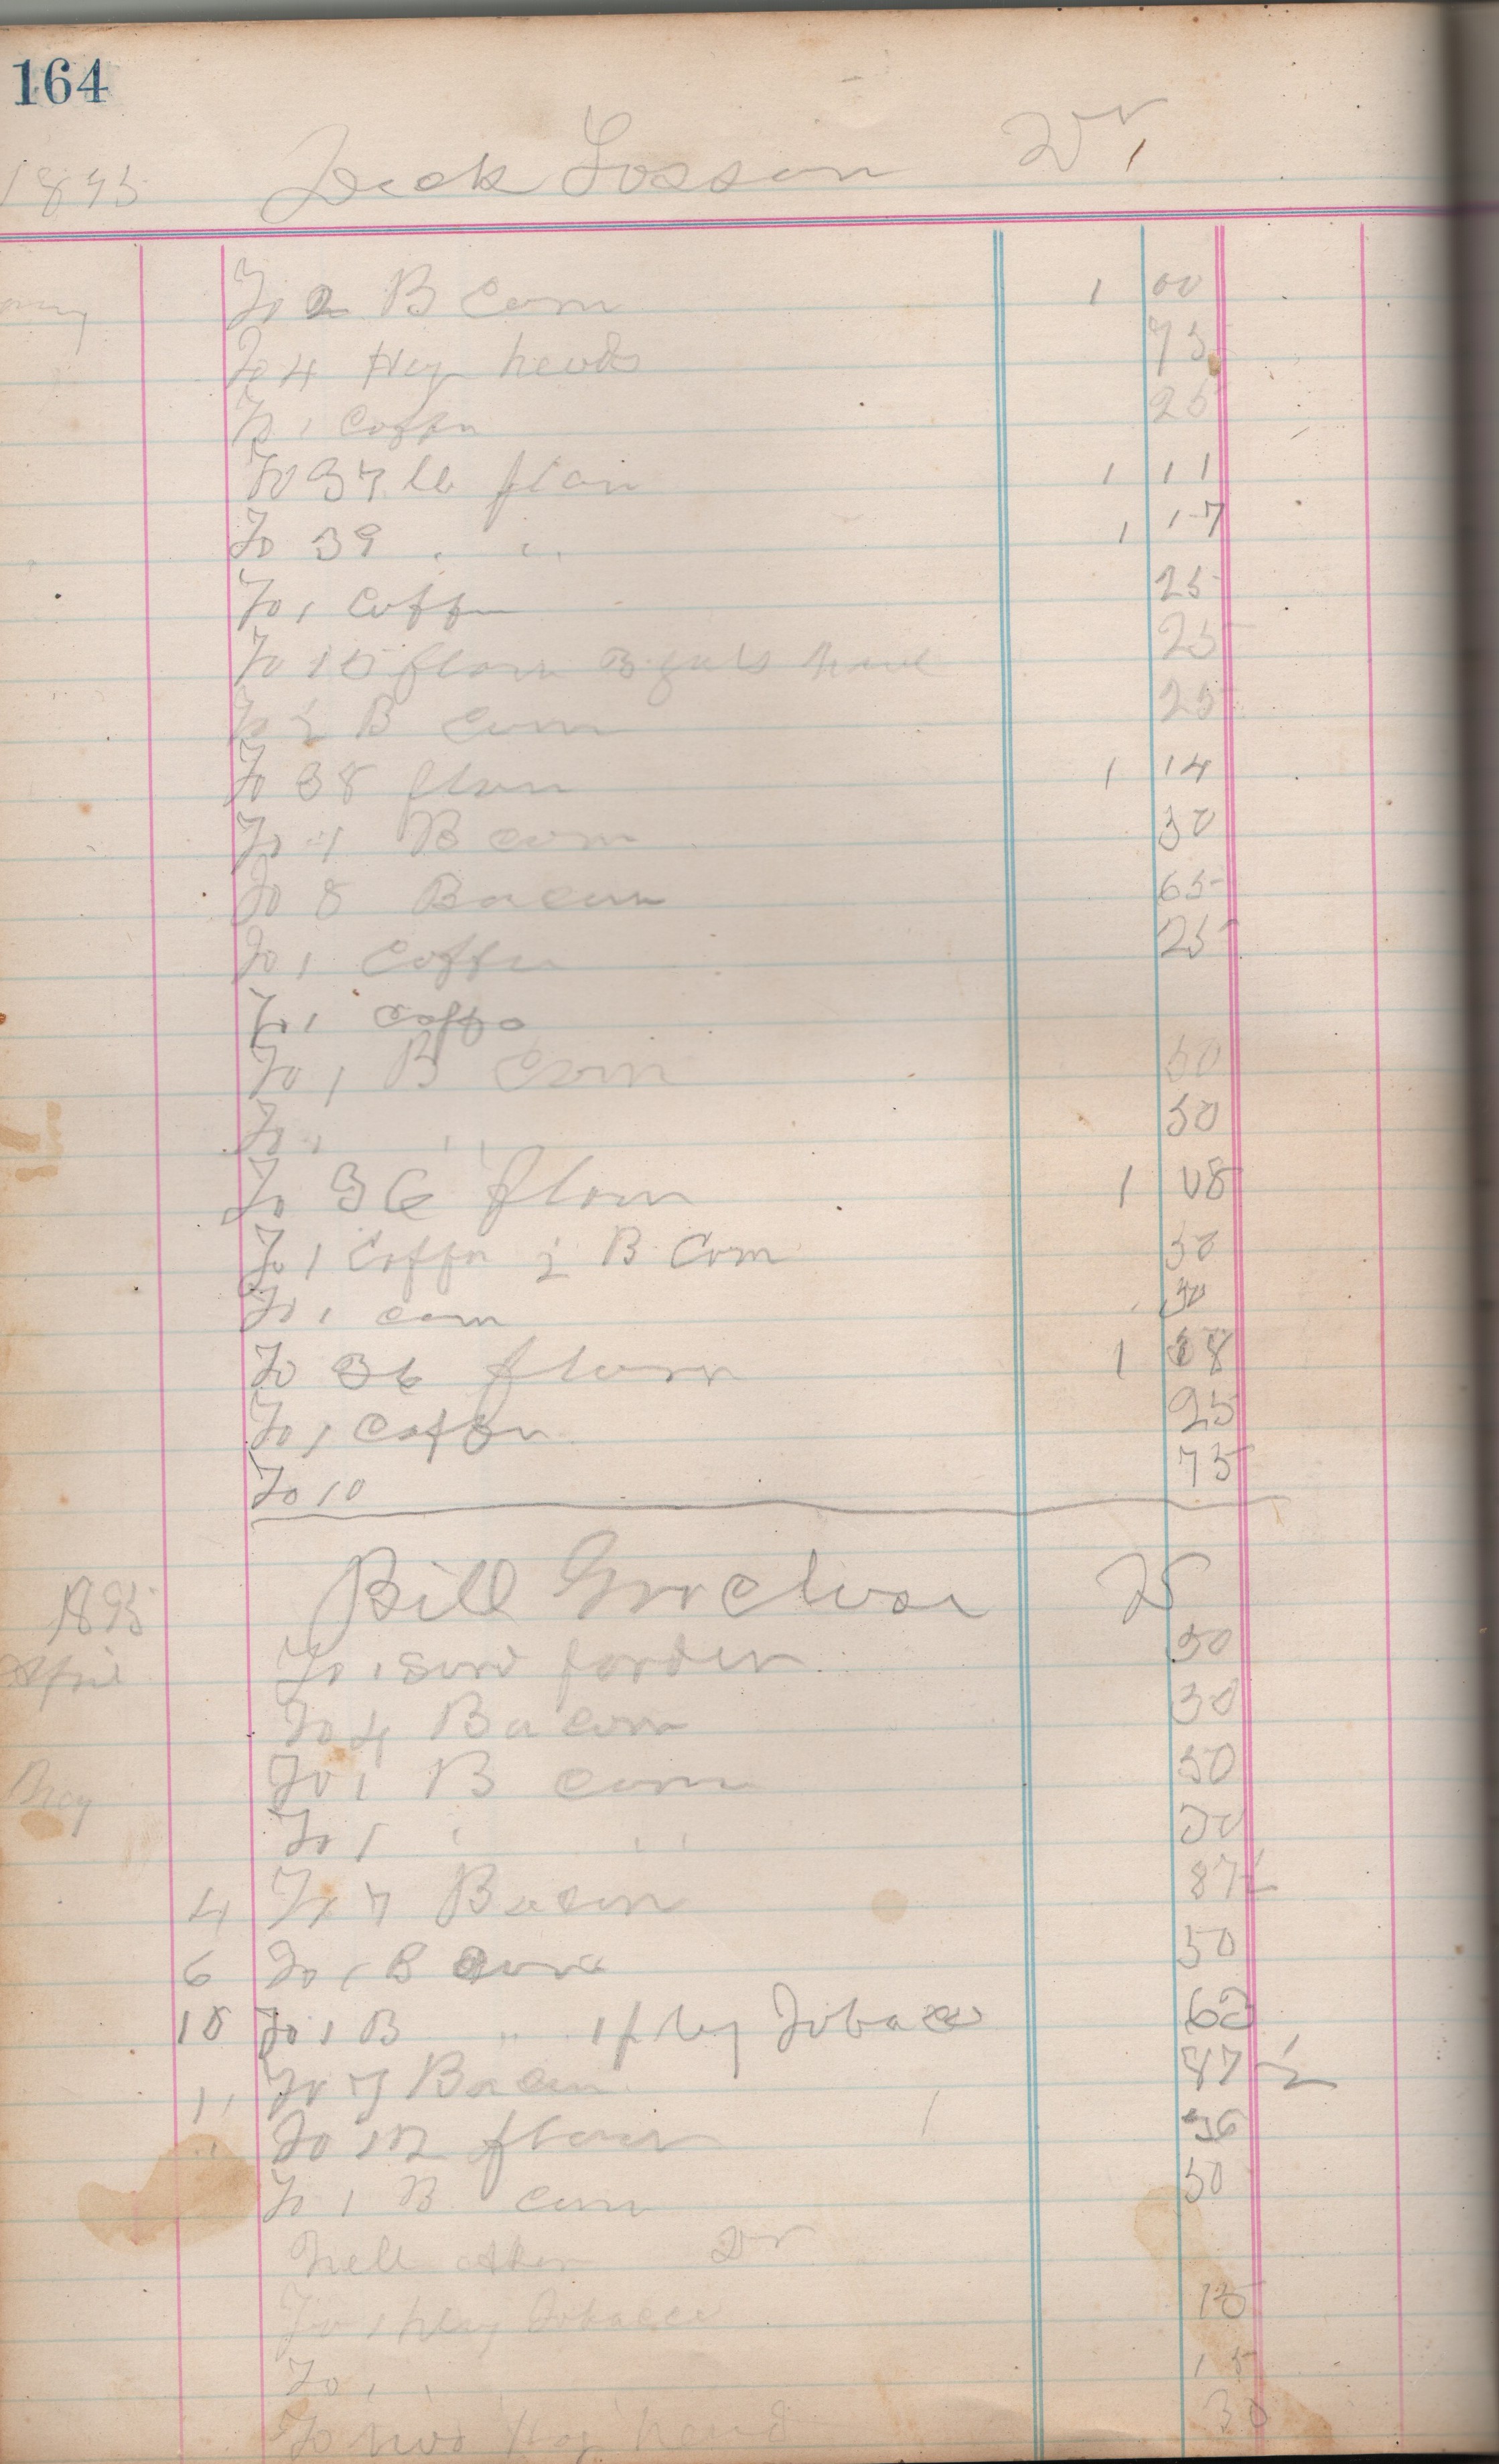 164
1895 Dick Dr
To 2 B Corn 1 00
To 4 Hog heads 75
To 1 Coffee 25
To 37 lb flour 1 11
To 39 " " 1 17
To 1 Coffee 25
To 15 flour 3 25
To ½ B Corn 25
To 38 flour 1 14
To 1 B corn 50
To 8 Bacon 65
To 1 Coffee 25
To 1 coffe
To 1 B Corn 50
To 1 " " 50
To 36 flour 1 08
To 1 Coffee ½ B Corn 50
To 1 corn 50
To 36 flour 1 08
To 1 Coffee 25
To 10 75
Bill Dr
1895
April To 1 fodder 50
To 4 Bacon 50
May To 1 B corn 50
To 1 " " 50
4 To 7 Bacon 87½
6 To 1 B corn 50
10 To 1 B " 1 plug Tobacco
11 To 7 Bacon 87½
" To 12 flour 36
To 1 B corn 50
Dr
To 1 plug Tobacco 15
To 1 " 15
To two Hog head 30